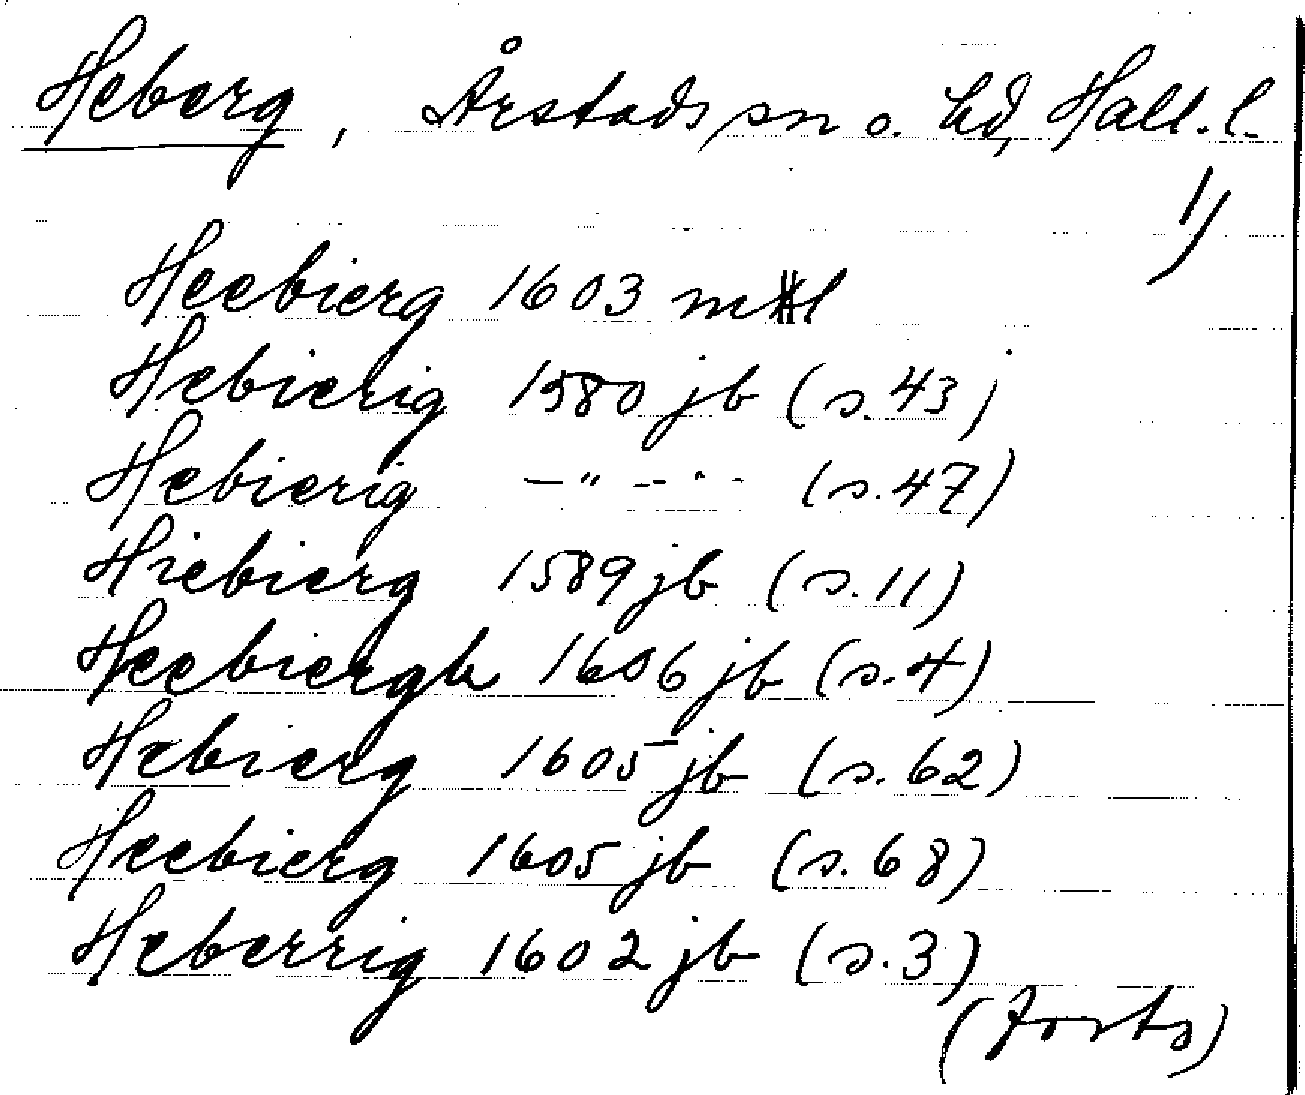 Heberg, Årstads sn o. hd, Hall. l.
1)
Heebierg 1603 mtl
Hebierig 1580 jb (s. 43)
Hebierig —"— - " - (s. 47)
Hiebierg 1589 jb (s. 11)
Heebiergh 1606 jb (s. 4)
Hebierg 1605 jb (s. 62)
Heebierg 1605 jb (s. 68)
Heberrig 1602 jb (s. 3)
(forts)